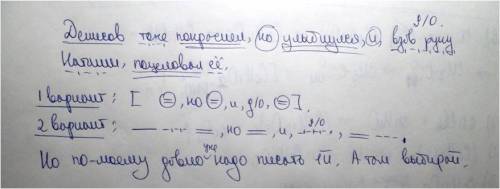 д/о.
Денисов тоже покраснел, но улыбнулся, и, взяв руку
Наташи, поцеловал её.
1 вариант: [ = , но = , и, д/о, = ].
2 вариант: — =, но =, и, д/о, =
Но по-моему надо писать 1й. А там выбирай.